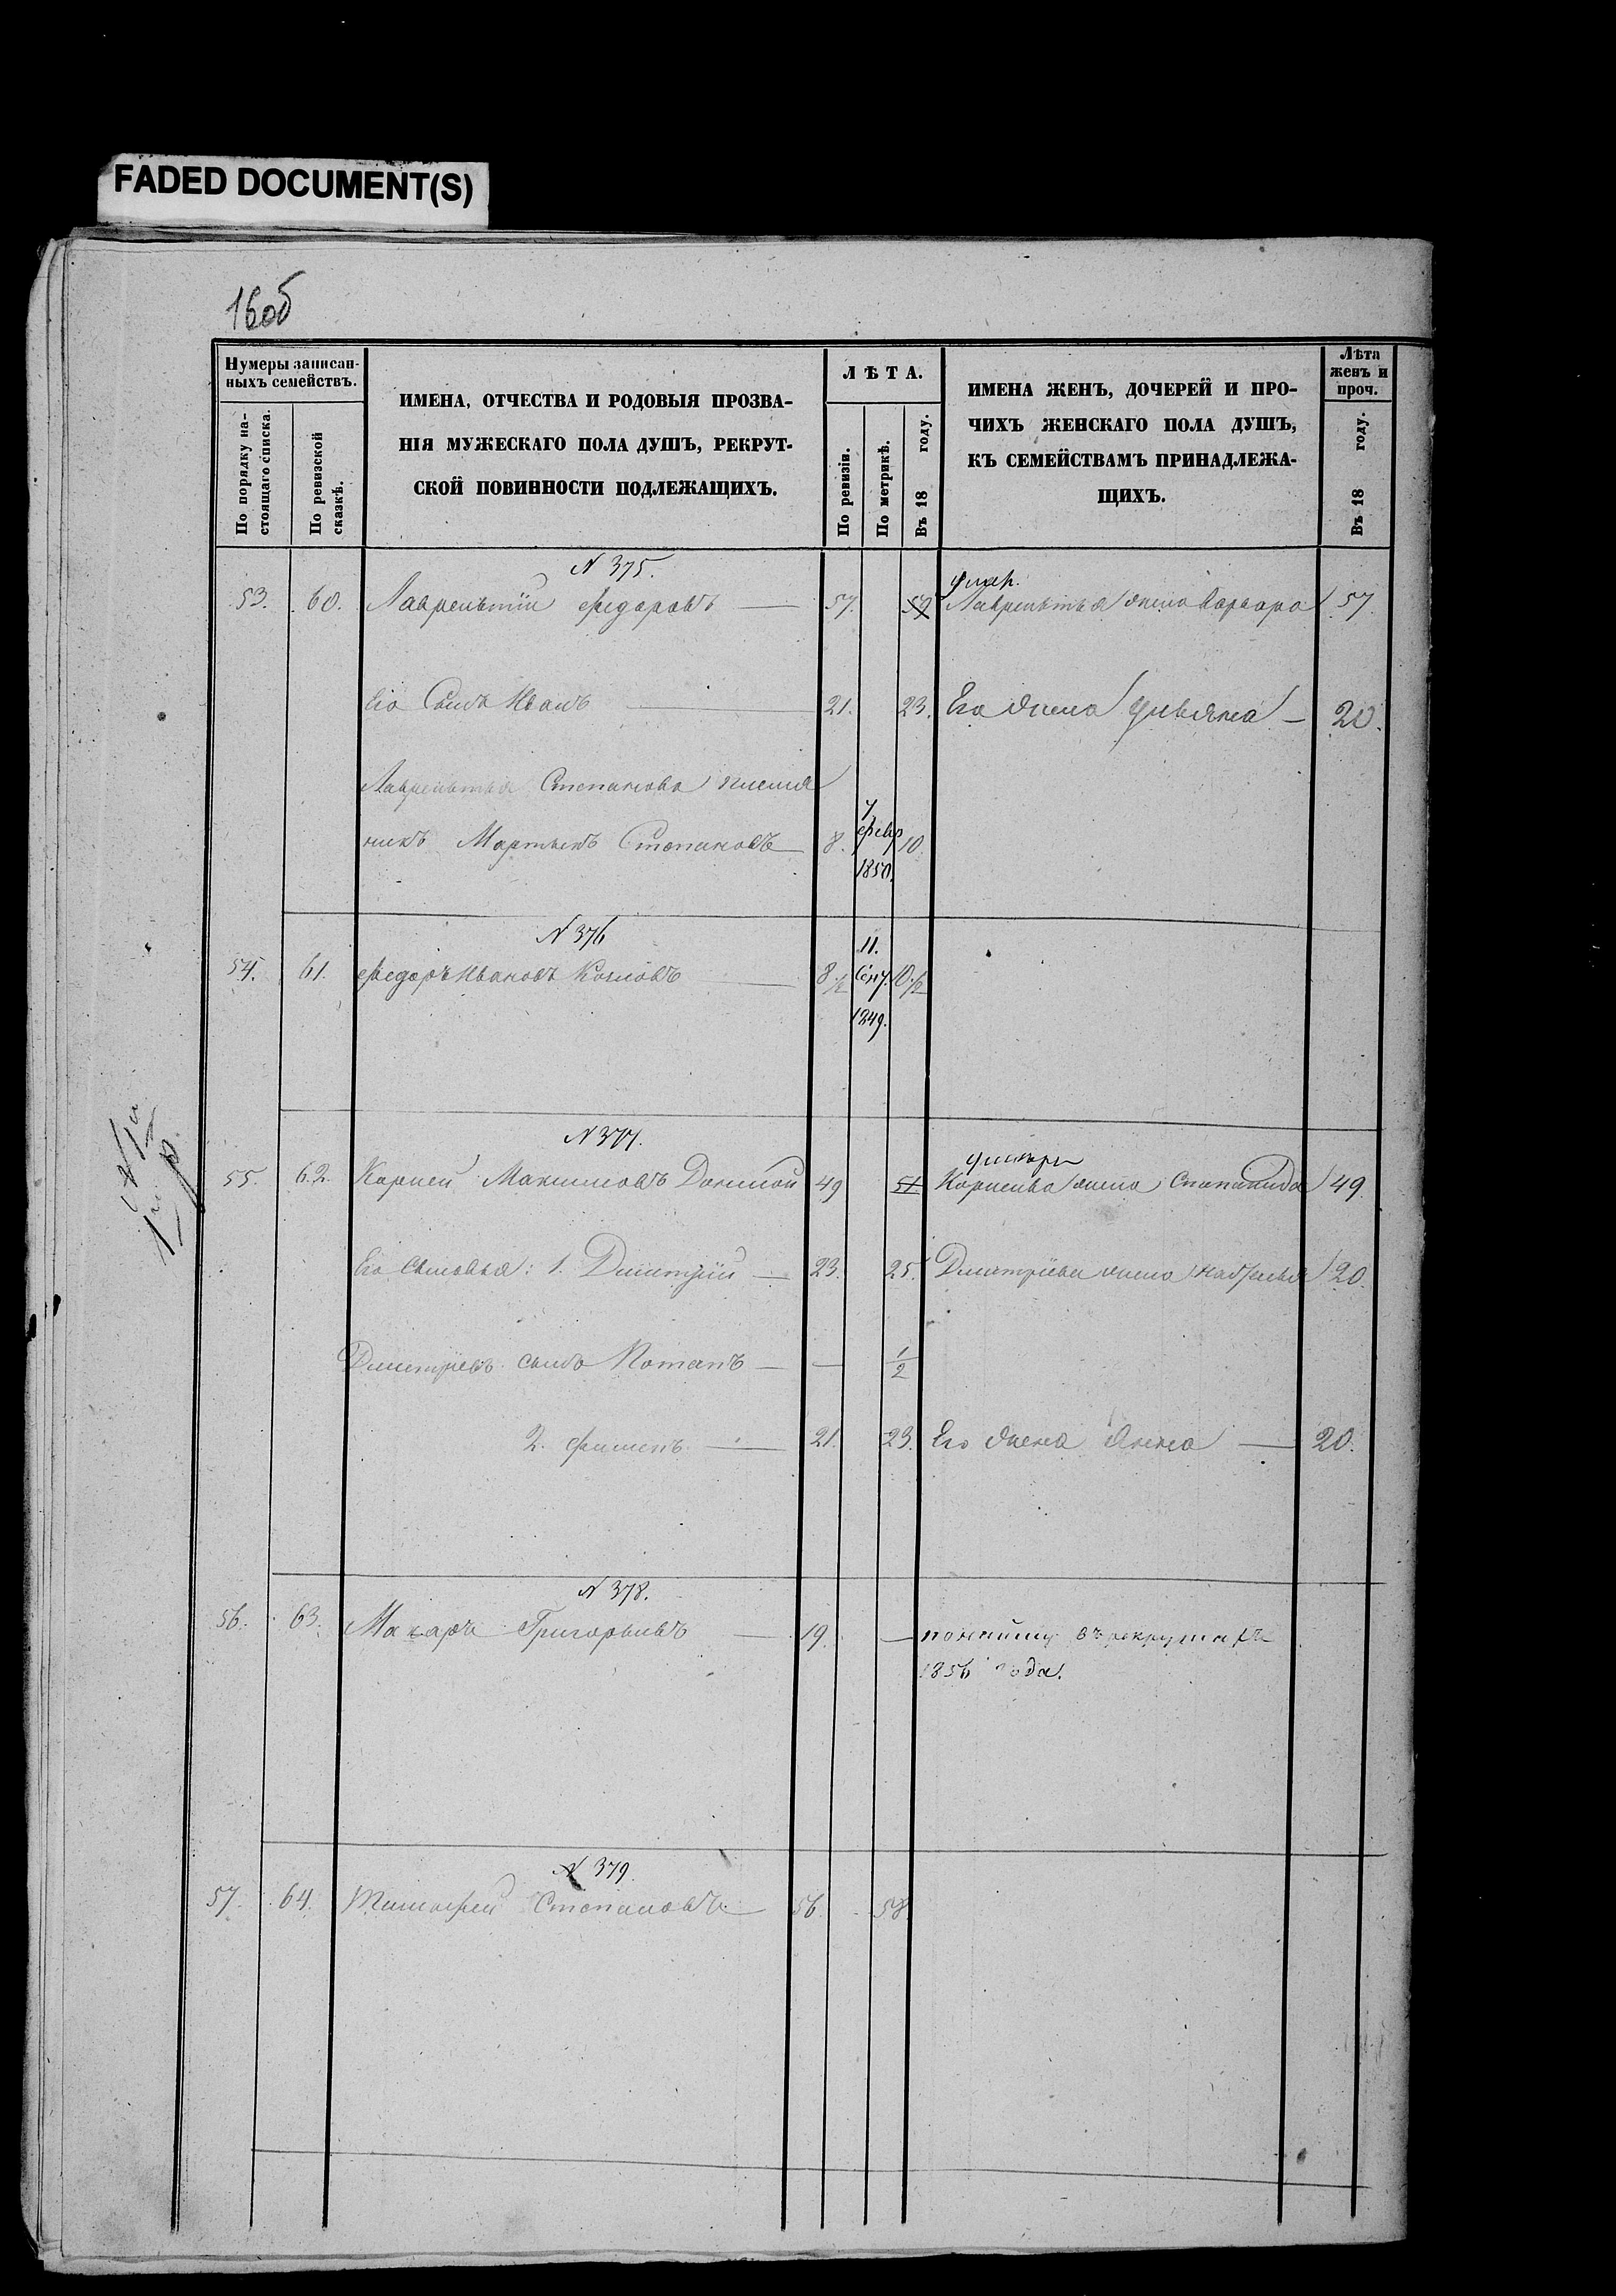 FADED DOCUMENT(S)
16об
Нумеры записан-
ныхъ семействъ.
По порядку на-
стоящаго списка.
По ревизской
сказкѣ.
ИМЕНА, ОТЧЕСТВА И РОДОВЫЯ ПРОЗВА-
НІЯ МУЖЕСКАГО ПОЛА ДУШЪ, РЕКРУТ-
СКОЙ ПОВИННОСТИ ПОДЛЕЖАЩИХЪ.
ЛѢТА.
По ревизіи.
По метрикѣ.
Въ 18 году.
ИМЕНА ЖЕНЪ, ДОЧЕРЕЙ И ПРО-
ЧИХЪ ЖЕНСКАГО ПОЛА ДУШЪ,
КЪ СЕМЕЙСТВАМЪ ПРИНАДЛЕЖА-
ЩИХЪ.
Лѣта
женъ и
проч.
Въ 18 году.
N 375.
53. 60. Лаврентій Федоровъ — 57. 59 Лаврентья жена Варвара 57.
Его Сынъ Иванъ — 21. 23. Его жена Ульяна — 20.
Лаврентья Степанова племя
никъ Мартынъ Степановъ — 8. 7 Февр 1850. 10.
N 376
54. 61. Федоръ Ивановъ Козловъ — 8 1/2 11. Сент. 1849. 10 1/2
N 377.
55. 62. Корней Максимовъ 49 51 Корнеева жена Степанида 49.
Его Сыновья: 1. Дмитрій — 23. 25. Дмитріева жена 20.
Дмитріевъ сынъ Потапъ — — 1/2
2. — 21. 23. Его жена Анна — 20.
N 378.
56. 63. Макаръ Григорьевъ — 19. — въ рекрутахъ
1856 года.
N 379.
57. 64. Тимофей Степановъ — 56. 58.